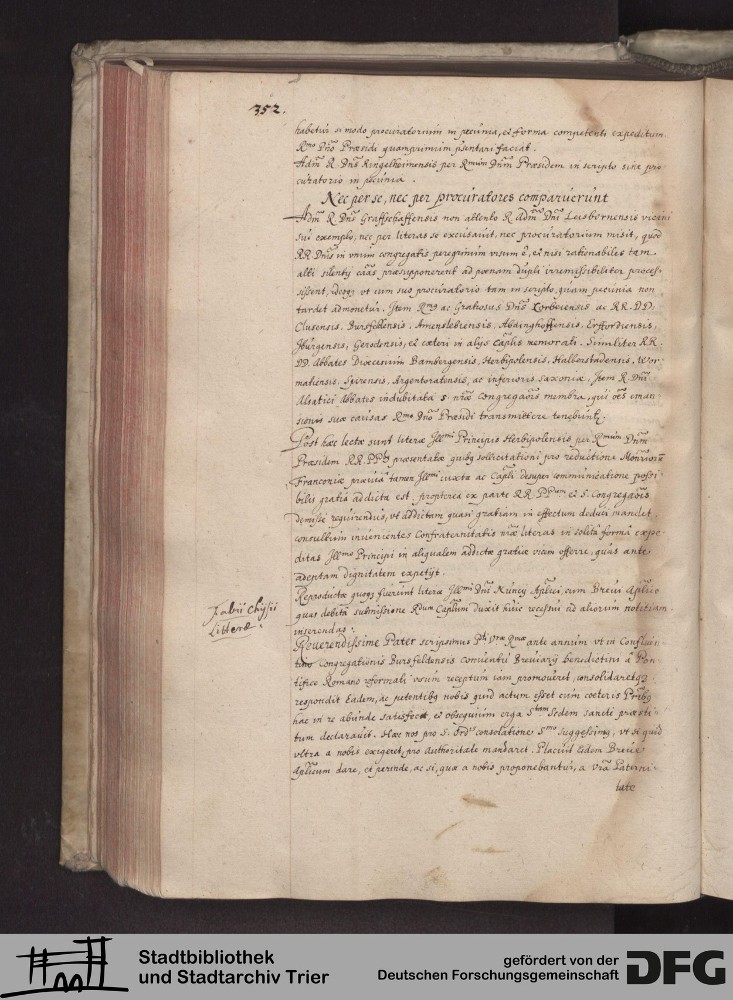 352.
habetur, si modo procuratorium in pecunia, et forma competenti expeditum
Rmo Dno Præsidi quamprimum pntari faciat.
Adm R. Dns Ringelheimensis per Rmum Dnum Præsidem in scripto sine pro
curatorio in pecunia.
Nec per se, nec per procuratores comparuerunt
Adm R. Dns Graffschaffensis non attento R. Adm Dni Leisbornensis vicini
sui exemplo, nec per literas se excusavit, nec procuratorium misit, quod
RR. Dnis in unum congregatis peregrinum visum e, et nisi rationabiles tam
alti silentij caas præsupponerent ad poenam dupli irremissibiliter proces-
sissent, ideoq ut cum suo procuratorio tam in scripto, quam pecunia non
tardet admonetur. Item Rmq ac Gratiosus Dns Corbeiensis ac RR. DD.
Clusensis, Bursfeldensis, Amenslebiensis, Abdinghoffensis, Erffordiensis,
Iburgensis, Gerodensis, et cæteri in alijs Caplis memorati. Similiter RR.
DD. Abbates Dioecesium Bambergensis, Herbipolensis, Halberstadensis, Wor-
matiensis, Spirensis, Argentoratensis, ac inferioris Saxoniæ, Item R. Dni
Alsatici Abbates indubitata S. nræ Congregaois membra, qui oes eman
sionis suæ causas Rmo Dno Præsidi transmittere tenebunt.
Post hæc lectæ sunt literæ Illmi Principis Herbipolensis per Rmum Dnum
Præsidem RR. PPbq præsentatæ quibq sollicitationi pro reductione Monriorum
Franconiæ prævia tamen Illmi iuxta ac Capli desuper communicatione possi
bilis gratia addicta est, propterea ex parte RR. PPum et S. Congregaois
demisse requirendus, ut addictam quasi gratiam in effectum deduci mandet,
consultum invenientes Confraternitatis nræ literas in solita forma expe-
ditas Illmo Principi in aliqualem addictæ gratiæ vicem offerre, quas ante
adeptam dignitatem expetijt.
Reproductæ quoq fuerunt literæ Illmi Dni Nuncij Aplici, cum Brevi Aplico
quas debita submissione Rdum Caplum duxit huic recessui ad aliorum notitiam
inserendas.
Fabii Chysii
Litteræ.
Reverendissime Pater scripsimus Pti vræ Rmæ ante annum ut in Confluen
tino Congregationis Bursfeldensis conventu Breviarij benedictini a Pon
tifice Romano reformati usum receptum iam promoveret, consolidaretq
respondit Eadem, ac petentibq nobis quid actum esset cum coeteris Pribq
hac in re abunde satisfecit, et obsequium erga Stam Sedem sancte præsti-
tum declaravit. Hæc nos pro S. Ordis consolatione Smo suggessimq, ut si quid
ultra a nobis exigeret, pro authoritate mandaret. Placuit Eidem Breve
Aplicum dare, et perinde, ac si, quæ a nobis proponebantur, a vra Paterni-
tate
Stadtbibliothek
und Stadtarchiv Trier
gefördert von der
Deutschen Forschungsgemeinschaft
DFG